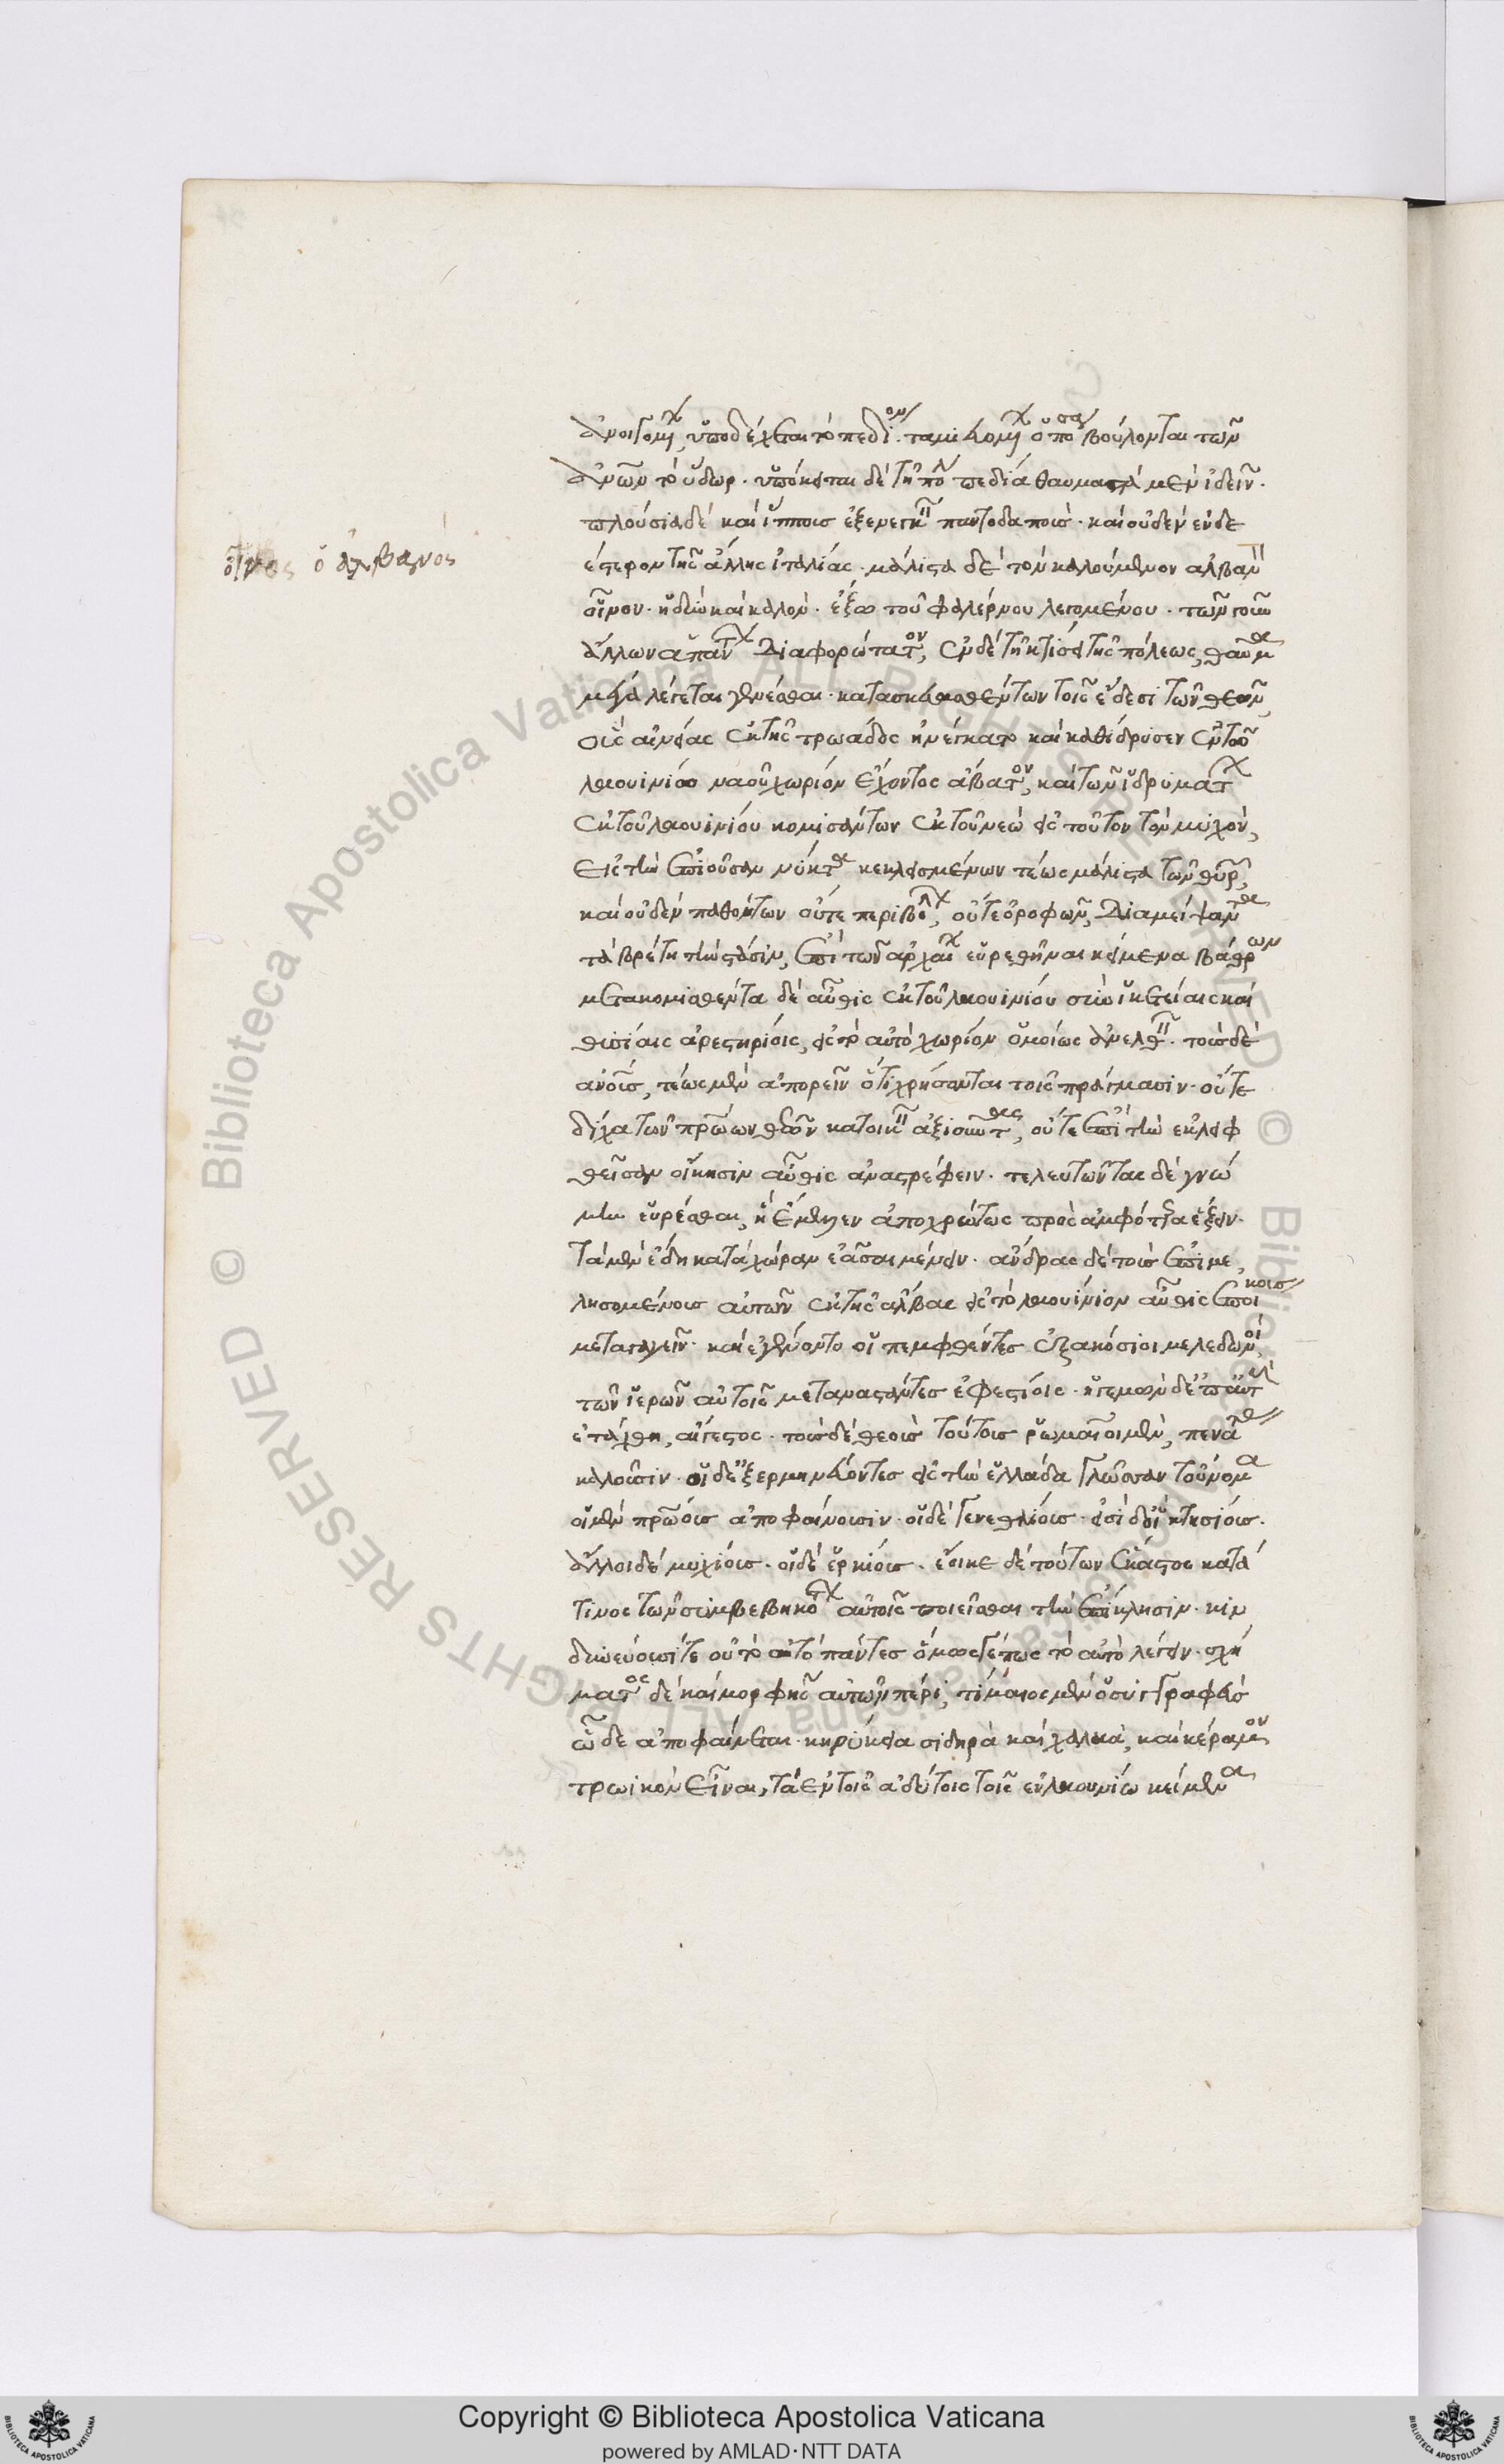 ἀνοιγομένων, ὑποδέχεται τὸ πεδίον. ταμιευομένων ὁπόσον βούλονται τῶν
ἀνων τὸ ὕδωρ. ὑπόκειται δὲ τῇ πόλει πεδία θαυμαστὰ μὲν ἰδεῖν.
πλούσια δὲ καὶ οἴνους ἐξενεγκεῖν παντοδαπούς. καὶ οὐδὲν ἐνδε
έστερον τῆς ἄλλης ἰταλίας. μάλιστα δὲ τὸν καλούμενον ἀλβανὸν
οἶνος ὁ ἀλβανός
οἶνον. ἡδὺν καὶ καλόν. ἔξω τοῦ φαλέρνου λεγομένου. τῶν γοῦν
ἄλλων ἁπάντων διαφορώτατον, ἐν δὲ τῇ κτίσει τῆς πόλεως, θαῦμα
μέγα λέγεται γενέσθαι. κατασκευασθέντων τοῖς ἕδεσι τῶν θεῶν,
οὓς αἰνείας ἐκ τῆς τρωάδος ἠνέγκατο καὶ καθίδρυσεν ἐν τῷ
λαουινίῳ ναοῦ χωρίον ἔχοντος ἄβατον, καὶ τῶν ἱδρυμάτων
ἐκ τοῦ λαουινίου κομισάντων ἐκ τοῦ νεὼ εἰς τοῦτον τὸν μυχόν,
εἰς τὴν ἐπιοῦσαν νύκτα κεκλεισμένων τέως μάλιστα τῶν θυρῶν,
καὶ οὐδὲν παθόντων οὔτε περιβόλων, οὔτε ὀροφῶν, διαμείψαντα
τὰ βρέτη τὴν στάσιν, ἐπὶ τῶν ἀρχαίων εὑρεθῆναι κείμενα βάθρων
μετακομισθέντα δὲ αὖθις ἐκ τοῦ λαουινίου σὺν ἱκετείαις καὶ
θυσίαις ἀρεστηρίοις, εἰς τὸ αὐτὸ χωρίον ὁμοίως ἀνελθεῖν. τοὺς δὲ
ἀνους, τέως μὲν ἀπορεῖν ὅτι χρήσονται τοῖς πράγμασιν. οὔτε
δίχα τῶν πρώων θεῶν κατοικεῖν ἀξιοῦντες, οὔτε ἐπὶ τὴν ἐκλειφ
θεῖσαν οἴκησιν αὖθις ἀναστρέφειν. τελευτῶντας δὲ γνώ
μην εὑρέσθαι, ἣ ἔμελλεν ἀποχρώντως πρὸς ἀμφότερα ἕξειν.
τὰ μὲν ἕδη κατὰ χώραν ἐᾶσαι μένειν. ἄνδρας δὲ τοὺς ἐπιμε
λησομένους αὐτῶν ἐκ τῆς ἄλβας εἰς τὸ λαουίνιον αὖθις ἐποίκους
μεταγαγεῖν. καὶ ἐγένοντο οἱ πεμφθέντες ἑξακόσιοι μελεδωνοί,
τῶν ἱερῶν αὐτοῖς μεταναστάντες ἐφεστίοις. ἡγεμὼν δὲ ἐπ' αὐτοῖς
ἐτάχθη, αἴγεστος. τοὺς δὲ θεοὺς τούτους ῥωμαῖοι μὲν, πενάτας
καλοῦσιν. οἱ δὲ ἐξερμηνεύοντες εἰς τὴν ἑλλάδα γλῶσσαν τοὔνομα
οἱ μὲν πρώους ἀποφαίνουσιν. οἱ δὲ γενεθλίους. εἰσὶ δ' οἳ κτησίους.
ἄλλοι δὲ μυχίους. οἱ δὲ ἑρκίους. ἔοικε δὲ τούτων ἕκαστος κατά
τινος τῶν συμβεβηκότων αὐτοῖς ποιεῖσθαι τὴν ἐπίκλησιν. κιν
δυνεύουσί τε οὐ τὸ αὐτὸ πάντες ὁμῶς γέ πως τὸ αὐτὸ λέγειν. σχή
ματος δὲ καὶ μορφῆς αὐτῶν πέρι, τίμαιος μὲν ὁ συγγραφεὺς
ὧδε ἀποφαίνεται. κηρύκεια σιδηρᾶ καὶ χαλκᾶ, καὶ κέραμον
τρωικὸν εἶναι, τὰ ἐν τοῖς ἀδύτοις τοῖς ἐν λαουινίῳ κείμενα
Copyright © Biblioteca Apostolica Vaticana
powered by AMLAD·NTT DATA